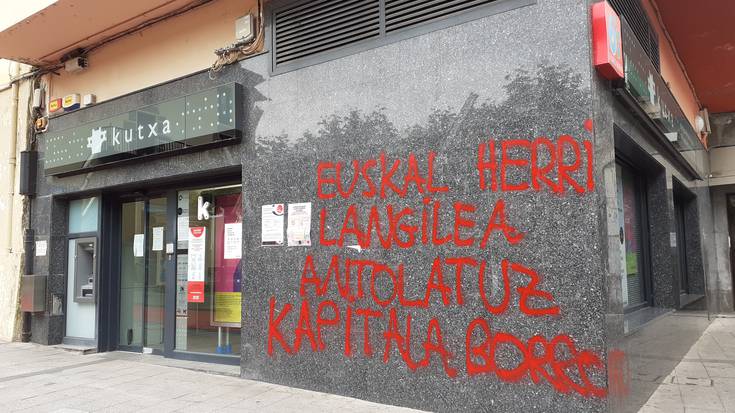 kutxa
k
EUSKAL HERRI
LANGILEA
ANTOLATUZ
KAPITALA